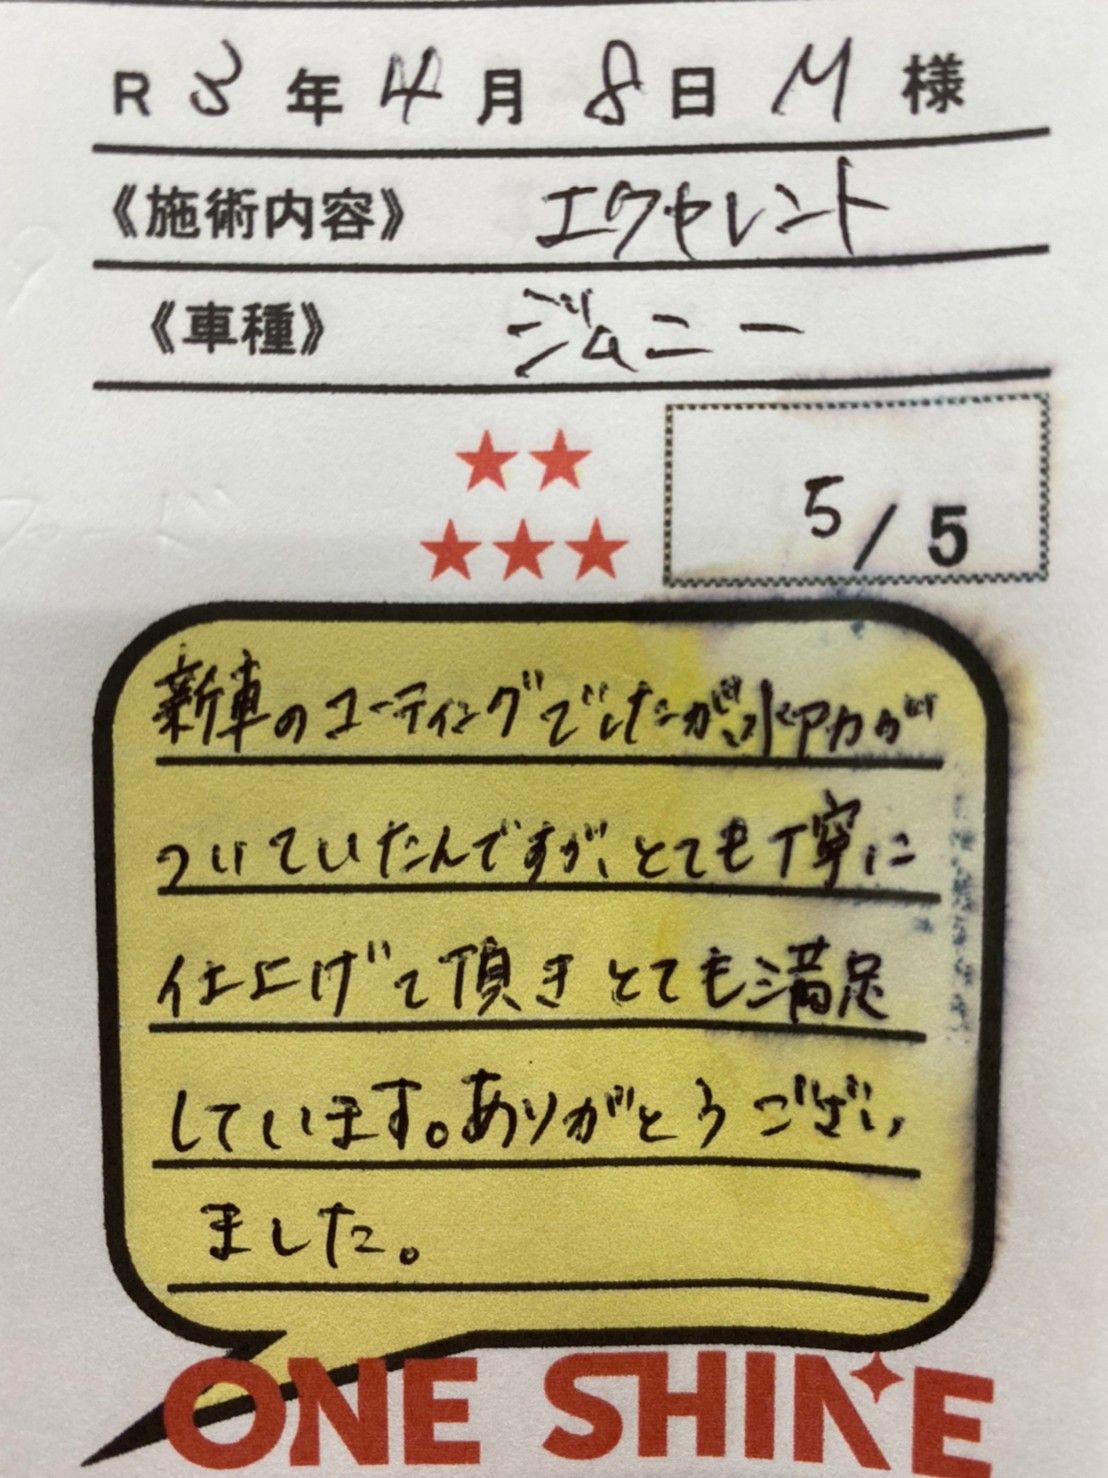 R 3 年 4 月 8 日 M 様
《施術内容》 エクセレント
《車種》 ジムニー
★★
★★★
5/5
新車のコーティングでしたが、水アカが
ついていたんですが、とても丁寧に
仕上げて頂きとても満足
しています。ありがとうござい
ました。
ONE SHINE